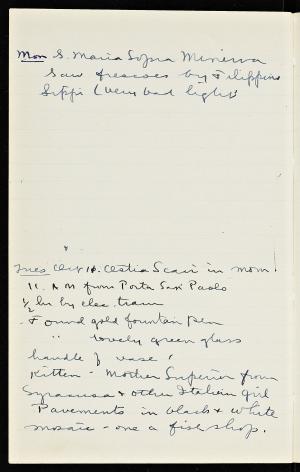 Mon S. Maria Sopra Minerva
Saw frescoes by Filippino
Lippi (very bad light)
Tues Oct 10. Ostia Scavi in morn.
11. A M from Porta San Paolo
1/2 hr by elec. tram
Found gold fountain pen
" lovely green glass
handle of vase!
Kitten - Mother Superior from
Syracusa & other Italian girl
Pavements in black & white
mosaic - one a fish shop.